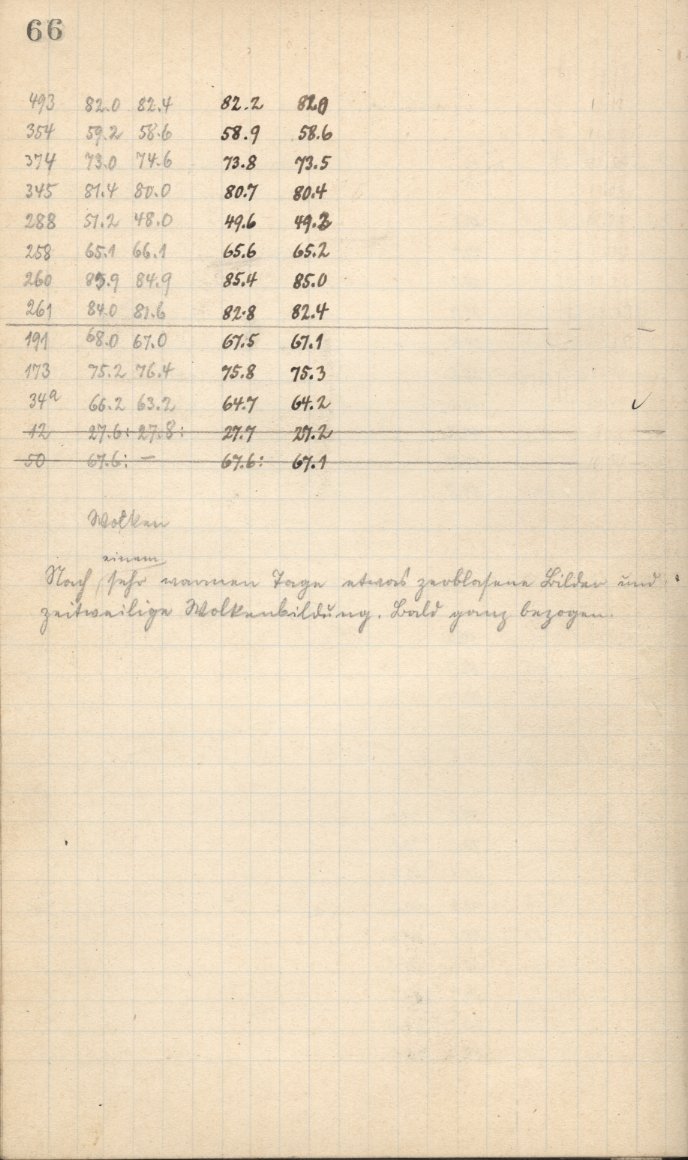 66
493 82.0 82.4 82.2 82.0
354 59.2 58.6 58.9 58.6
374 73.0 74.6 73.8 73.5
345 81.4 80.0 80.7 80.4
288 51.2 48.0 49.6 49.3
258 65.1 66.1 65.6 65.2
260 85.9 84.9 85.4 85.0
261 84.0 81.6 82.8 82.4
191 68.0 67.0 67.5 67.1
173 75.2 76.4 75.8 75.3
34a 66.2 63.2 64.7 64.2 ✓
12 27.6: 27.8: 27.7 27.2
50 67.6: — 67.6: 67.1
Wolken
einem
Nach sehr warmen Tage etwas zerblasene Bilder und
zeitweilige Wolkenbildung. Bald ganz bezogen.